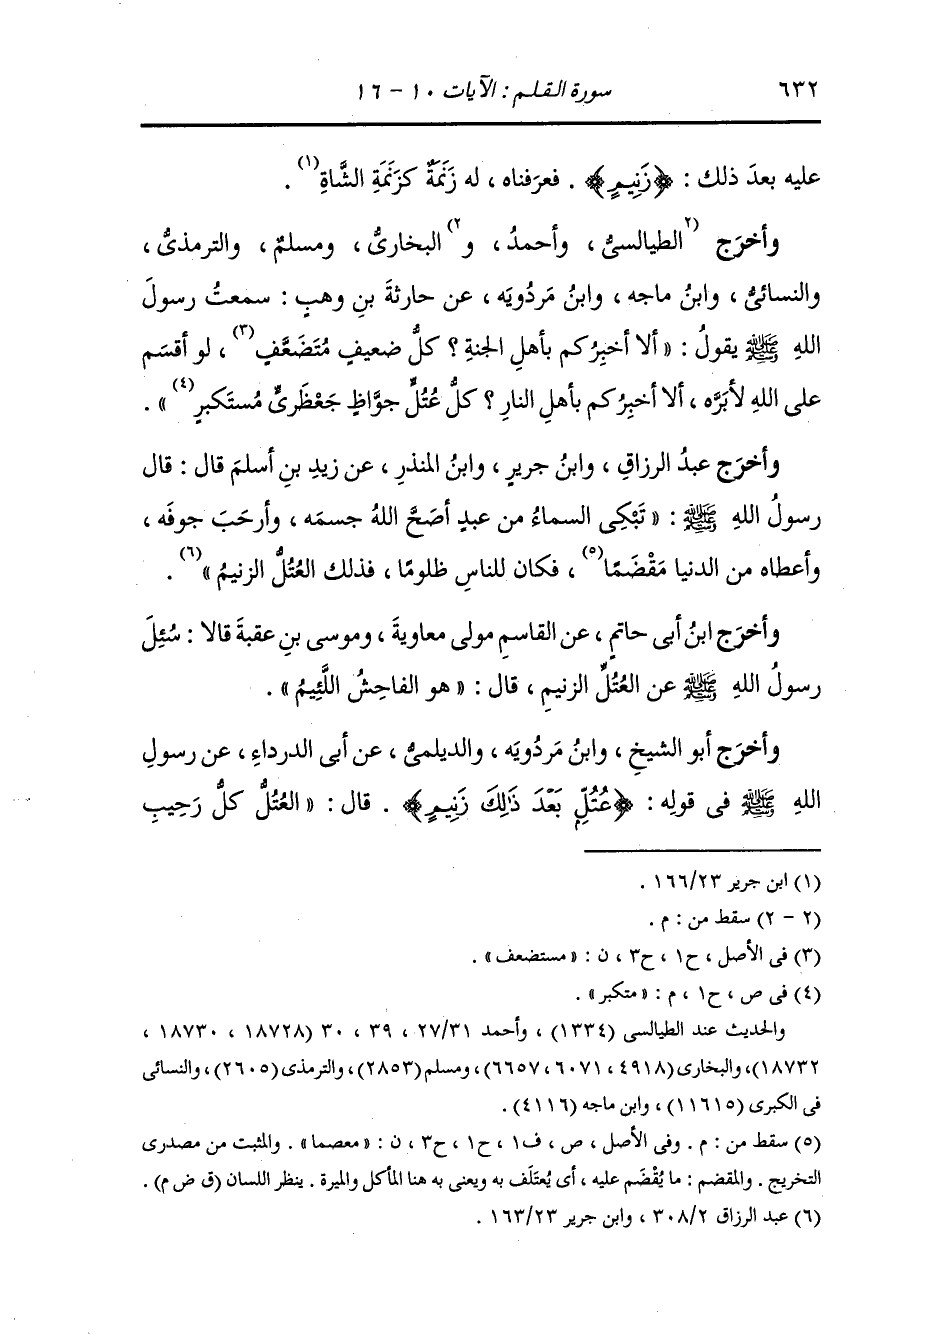 ٦٣٢ سورة القلم : الآيات ١٠ - ١٦
عليه بعدَ ذلك : ﴿زَنِيمٍ﴾ . فعرَفناه ، له زَنَمَةٌ كزَنَمَةِ الشَّاةِ(١) .
وأخرَج (٢الطيالسىُّ ، وأحمدُ ، و٢) البخارىُّ ، ومسلمٌ ، والترمذىُّ ،
والنسائىُّ ، وابنُ ماجه ، وابنُ مَردُويَه ، عن حارثةَ بنِ وهبٍ : سمعتُ رسولَ
اللهِ ﷺ يقولُ : « ألا أخبِرُكم بأهلِ الجنةِ ؟ كلُّ ضعيفٍ مُتَضَعَّفٍ(٣) ، لو أقسَم
على اللهِ لأبَرَّه ، ألا أخبِرُكم بأهلِ النارِ ؟ كلُّ عُتُلٍّ جوَّاظٍ جَعْظَرىٍّ مُستَكبرٍ(٤) » .
وأخرَج عبدُ الرزاقِ ، وابنُ جريرٍ ، وابنُ المنذرِ ، عن زيدِ بنِ أسلمَ قال : قال
رسولُ اللهِ ﷺ : « تَبْكِى السماءُ من عبدٍ أصَحَّ اللهُ جسمَه ، وأرحَبَ جوفَه ،
وأعطاه من الدنيا مَقْضَمًا(٥) ، فكان للناسِ ظلومًا ، فذلك العُتُلُّ الزنيمُ »(٦) .
وأخرَج ابنُ أبى حاتمٍ ، عن القاسمِ مولى معاويةَ ، وموسى بنِ عقبةَ قالا : سُئِلَ
رسولُ اللهِ ﷺ عن العُتُلِّ الزنيمِ ، قال : « هو الفاحِشُ اللَّئِيمُ » .
وأخرَج أبو الشيخِ ، وابنُ مَردُويَه ، والديلمىُّ ، عن أبى الدرداءِ ، عن رسولِ
اللهِ ﷺ فى قولِه : ﴿عُتُلٍّۭ بَعْدَ ذَٰلِكَ زَنِيمٍ﴾ . قال : « العُتُلُّ كلُّ رَحِيبِ
(١) ابن جرير ١٦٦/٢٣ .
(٢ - ٢) سقط من : م .
(٣) فى الأصل ، ح١ ، ح٣ ، ن : « مستضعف » .
(٤) فى ص ، ح١ ، م : « متكبر » .
والحديث عند الطيالسى (١٣٣٤) ، وأحمد ٢٧/٣١ ، ٣٩ ، ٣٠ (١٨٧٢٨ ، ١٨٧٣٠ ،
١٨٧٣٢)، والبخارى (٤٩١٨ ، ٦٠٧١ ، ٦٦٥٧) ، ومسلم (٢٨٥٣) ، والترمذى (٢٦٠٥) ، والنسائى
فى الكبرى (١١٦١٥) ، وابن ماجه (٤١١٦) .
(٥) سقط من : م . وفى الأصل ، ص ، ف١ ، ح١ ، ح٣ ، ن : « معصما » . والمثبت من مصدرى
التخريج . والمقضم : ما يُقْضَم عليه ، أى يُعتَلَف به ويعنى به هنا المأكل والميرة . ينظر اللسان (ق ض م) .
(٦) عبد الرزاق ٣٠٨/٢ ، وابن جرير ١٦٣/٢٣ .